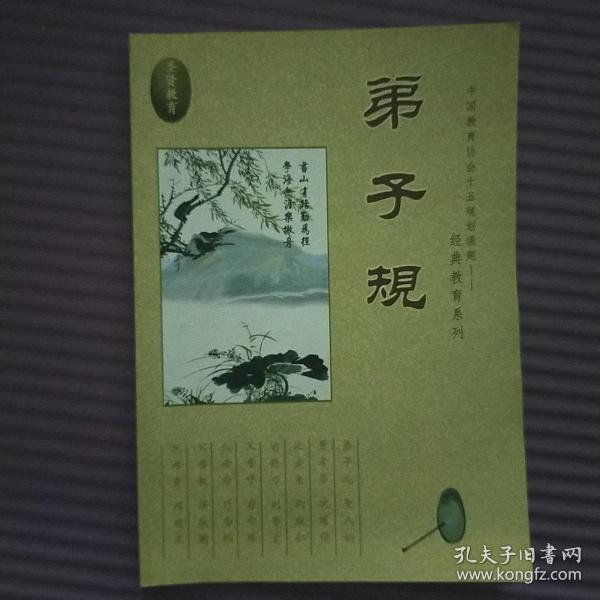 圣贤教育
弟子規
中国教育协会十五规划课题——
经典教育系列
書山有路勤爲徑
學海無涯樂做舟
弟子规 聖人訓
首孝弟 次謹信
泛愛衆 而親仁
有餘力 則學文
父母呼 應勿緩
父母命 行勿懶
父母教 須敬聽
父母責 須順承
孔夫子旧书网
www.kongfz.com